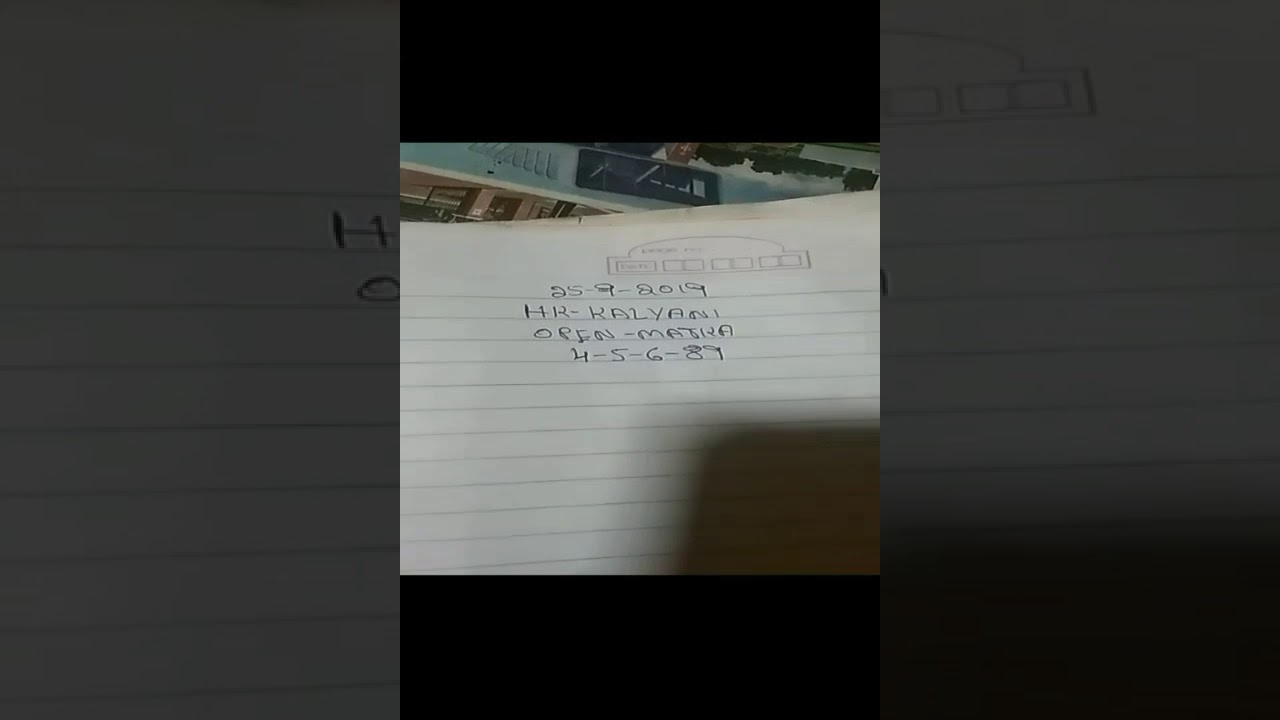 Page No.
Date
25-9-2019
HR-KALYANI
OPEN-MATKA
4-5-6-89